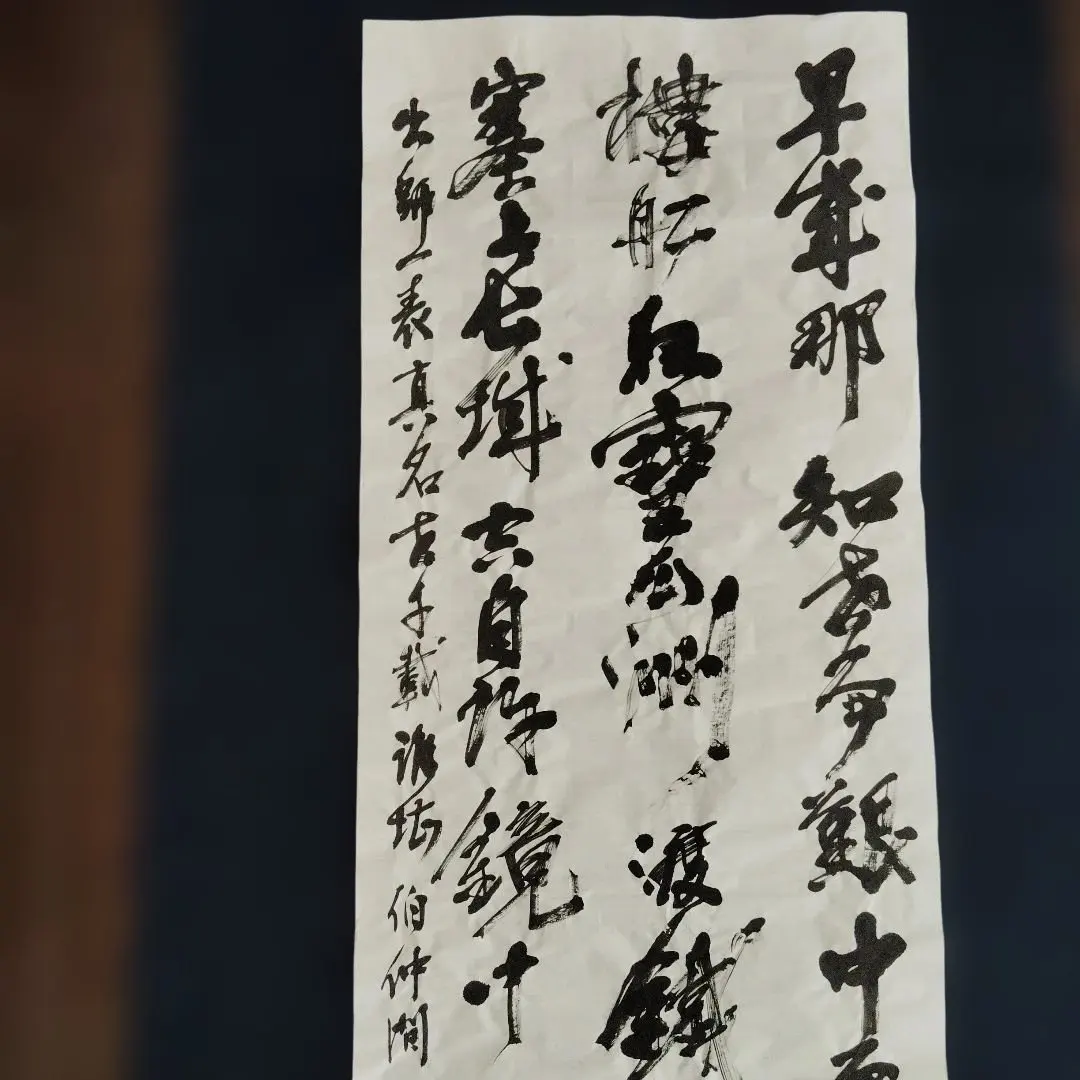 早歲那知世事艱中
樓船夜雪瓜洲渡鐵
塞上长城空自許鏡中
出師一表真名世千載誰堪伯仲間